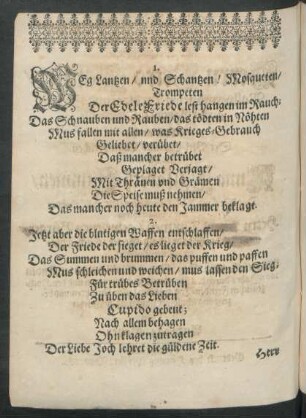 1.
WEg Lantzen / und Schantzen / Mosqueten /
Trompeten
Der Edele Friede lest hangen im Rauch:
Das Schnauben und Rauben / das tödten in Nöhten
Mus fallen mit allen / was Krieges-Gebrauch
Geliebet / verübet /
Daß mancher betrübet
Geplaget Verjagt /
Mit Thränen und Grämen
Die Speise muß nehmen /
Das mancher noch heute den Jammer beklagt.
2.
Jetzt aber die blutigen Waffen entschlaffen /
Der Friede der sieget / es lieget der Krieg /
Das Summen und brummen / das puffen und paffen
Mus schleichen und weichen / mus lassen den Sieg:
Für trübes Betrüben
Zu üben das Lieben
Cupido gebeut;
Nach allem behagen
Ohn klagen zutragen
Der Liebe Joch lehret die güldene Zeit.
Herv